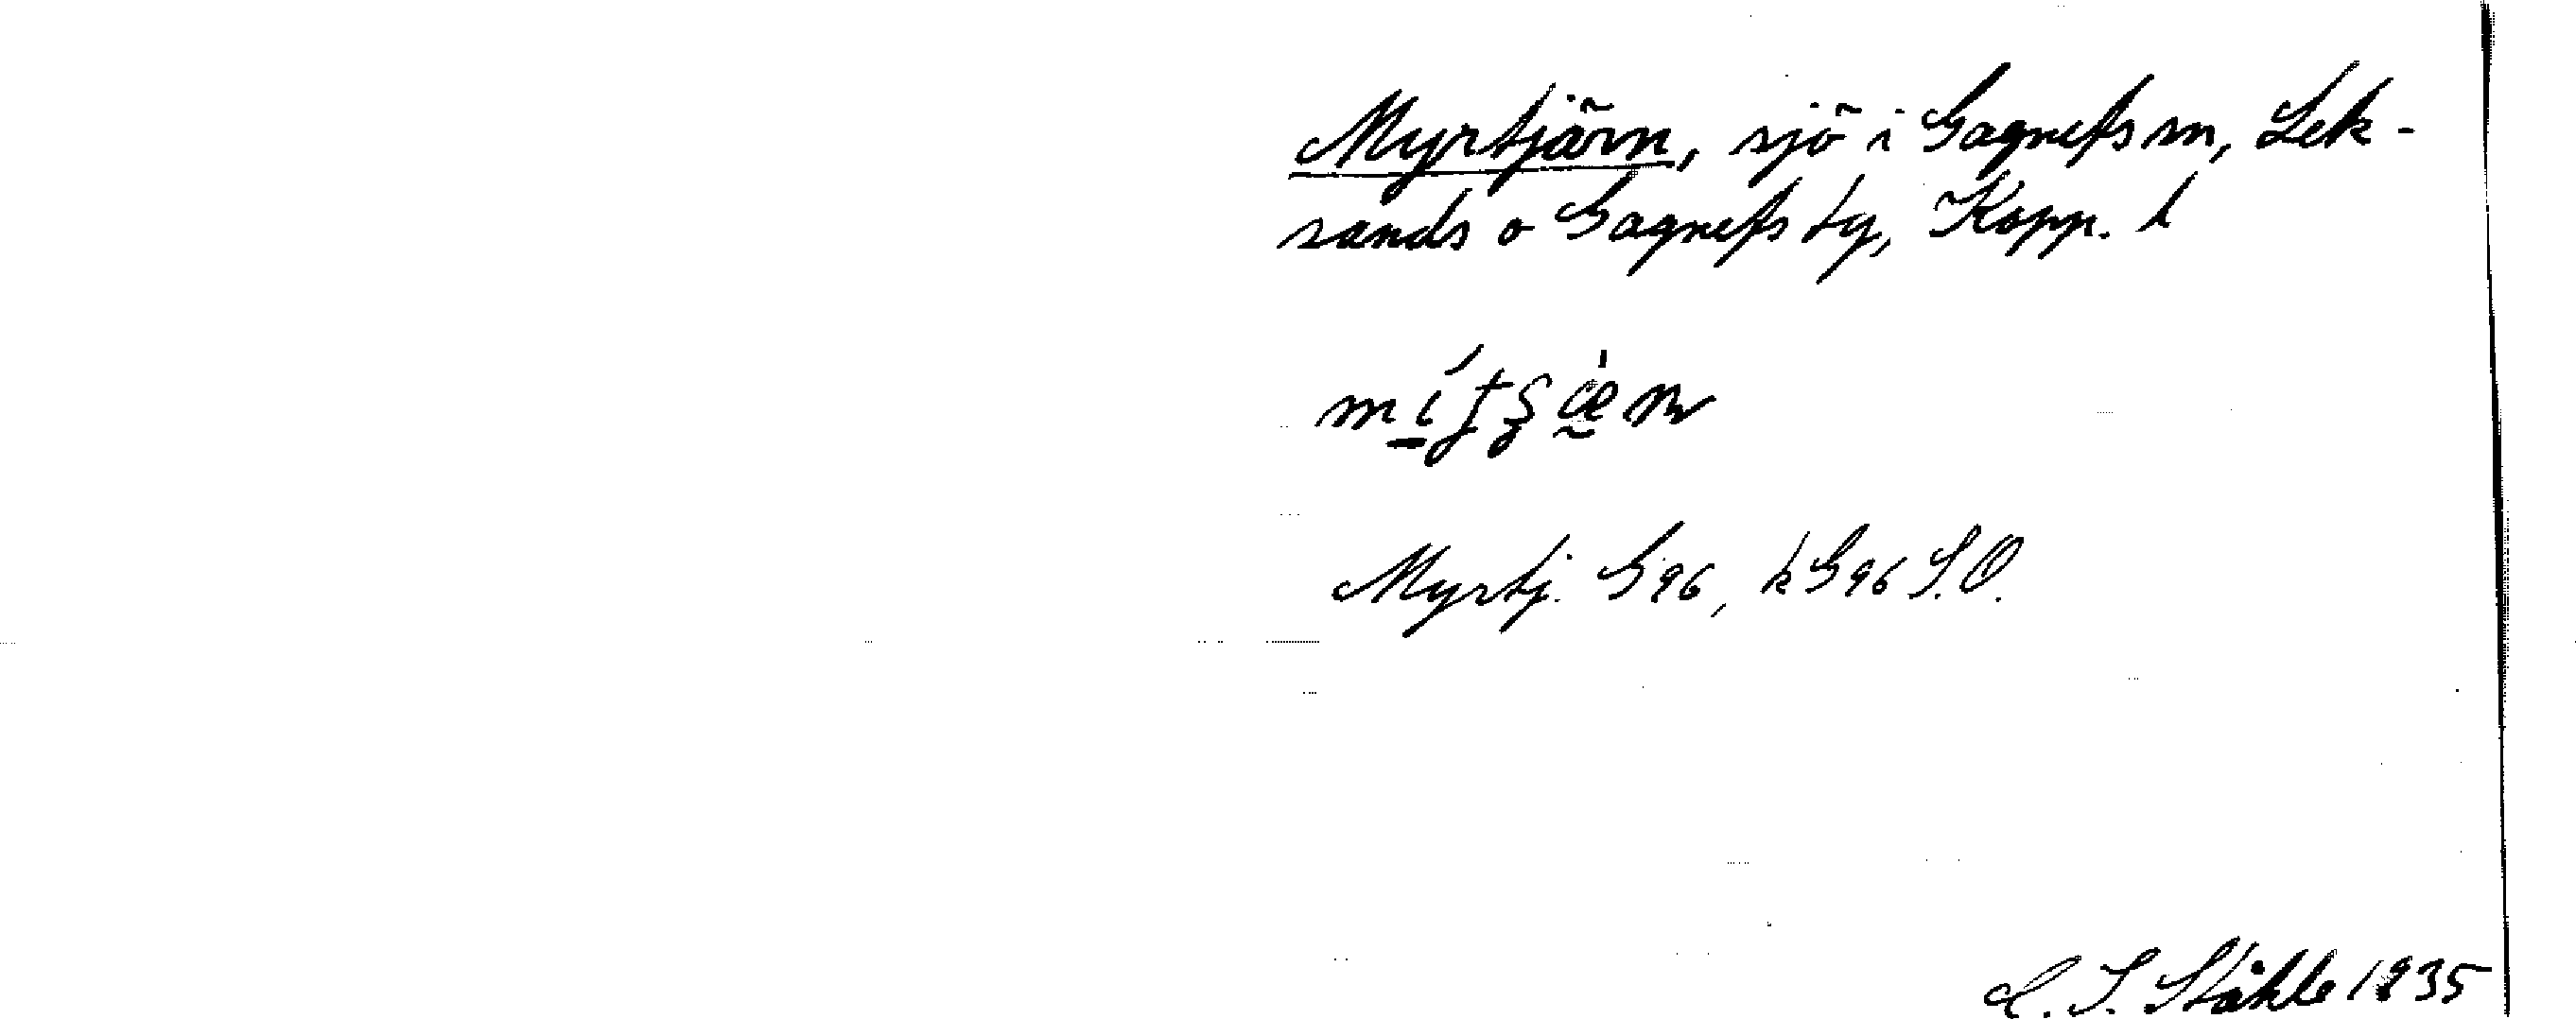 Myrtjärn, sjö i Gagnefs sn, Lek-
sands o Gagnefs tg, Kopp. l
Myrtj. G96, kG96 S.O.
C. I. Ståhle 1935